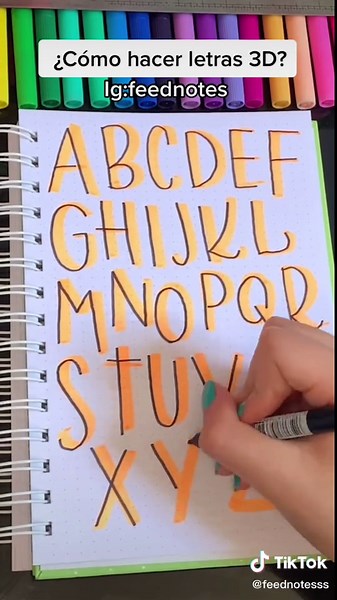 ¿Cómo hacer letras 3D?
Ig:feednotes
ABCDEF
GHIJKL
MNOPQR
STUV
XYZ
TikTok
@feednotesss